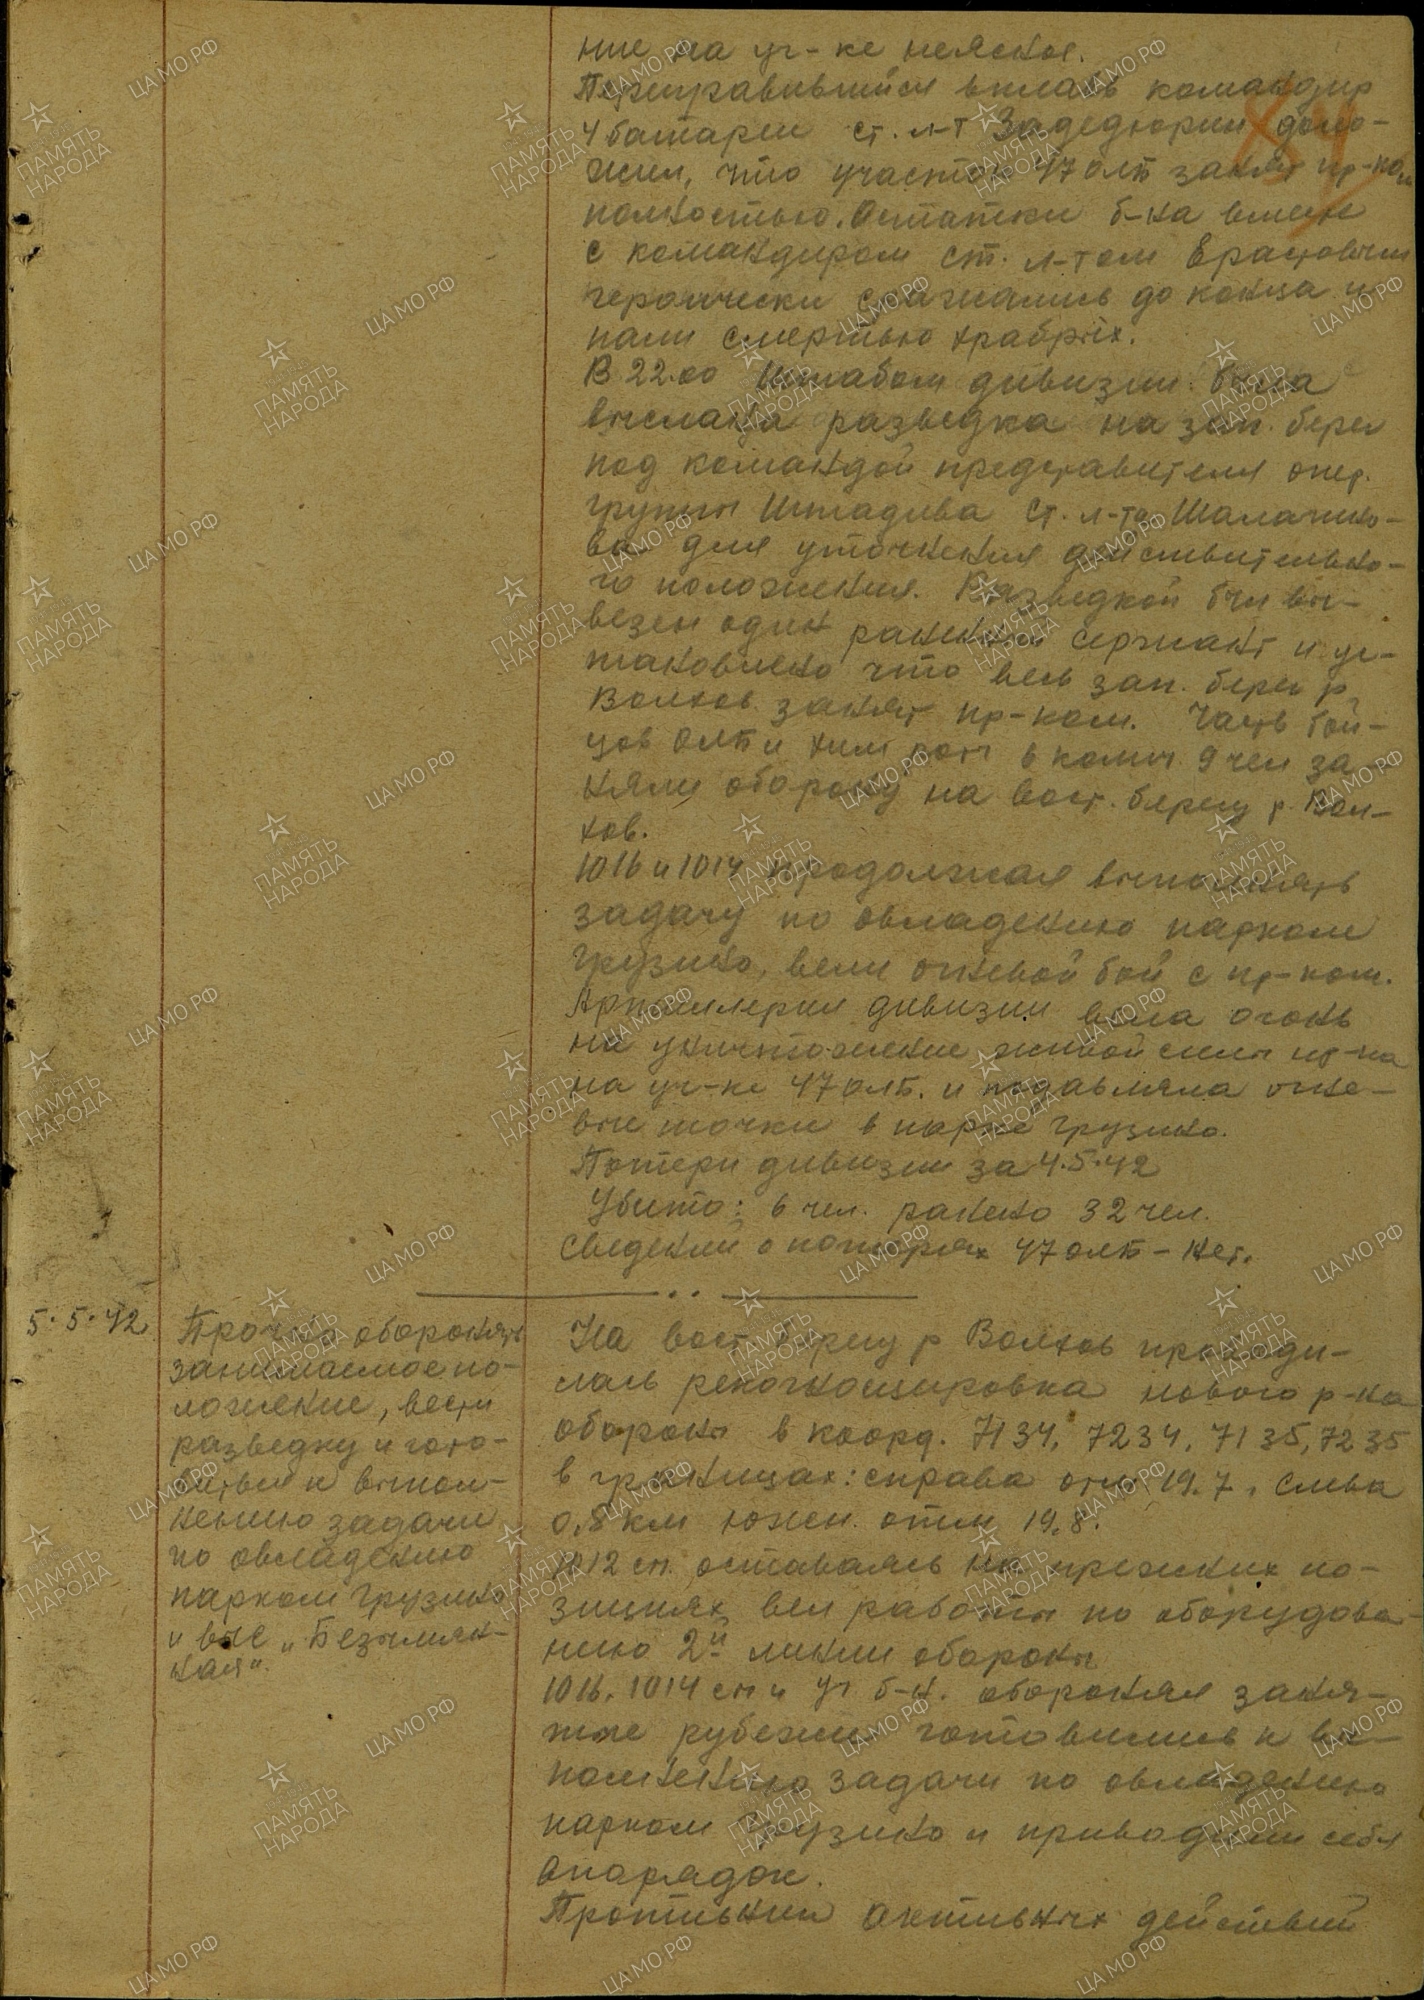 ние на уч-ке неясное.
Переправившийся вплавь командир
4 батареи ст. л-т Задедюрин доло-
жил, что участок 47 олб занят пр-ком
полностью. Остатки б-на вместе
с командиром ст. л-том
героически сражались до конца и
пали смертью храбрых.
В 22.00 Штабом дивизии была
выслана разведка на зап. берег
под командой представителя опер.
группы Штадива ст. л-та Шалачико-
ва для уточнения действительно-
го положения. Разведкой был вы-
везен один раненый сержант и ус-
тановлено что весь зап. берег р.
Волхов занят пр-ком. Часть бой-
цов олб и хим роты в колич 9 чел за-
няли оборону на вост. берегу р. Вол-
хов.
1016 и 1014 продолжая выполнять
задачу по овладению парком
Грузино, вели огневой бой с пр-ком.
Артиллерия дивизии вела огонь
на уничтожение живой силы пр-ка
на уч-ке 47 олб. и подавляла огне-
вые точки в парке Грузино.
Потери дивизии за 4.5.42
Убито: 6 чел. ранено 32 чел.
Сведений о потерях 47 олб - нет.
84
5.5.42
Прочно оборонять
занимаемое по-
ложение, вести
разведку и гото-
виться к выпол-
нению задачи
по овладению
парком Грузино
и выс „Безымян-
ная".
На вост. берегу р Волхов проводи-
лась рекогносцировка нового р-на
обороны в коорд. 7134, 7234, 7135, 7235
в границах: справа отм 19.7, слева
0,8 км южн. отм 19.8.
1012 сп. оставаясь на прежних по-
зициях вел работы по оборудова-
нию 2й линии обороны
1016, 1014 сп и уч б-н. обороняя заня-
тые рубежи готовились к вы-
полнению задачи по овладению
парком Грузино и приводили себя
в порядок.
Противник активных действий
ЦА МО РФ
ПАМЯТЬ НАРОДА